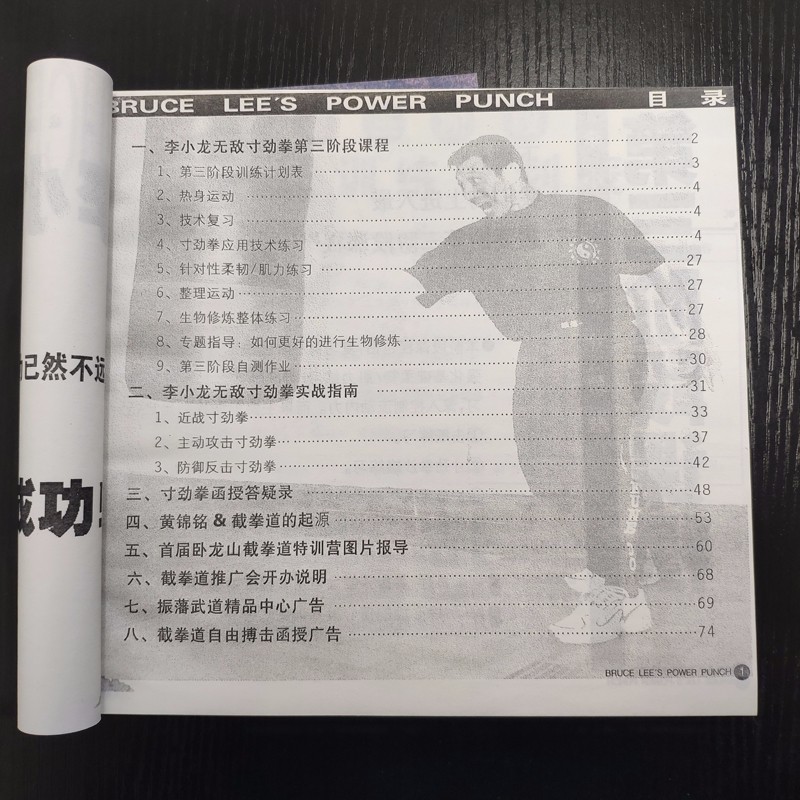 BRUCE LEE'S POWER PUNCH 目 录
一、李小龙无敌寸劲拳第三阶段课程 2
1、第三阶段训练计划表 3
2、热身运动 4
3、技术复习 4
4、寸劲拳应用技术练习 4
5、针对性柔韧/肌力练习 27
6、整理运动 27
7、生物修炼整体练习 27
8、专题指导：如何更好的进行生物修炼 28
9、第三阶段自测作业 30
二、李小龙无敌寸劲拳实战指南 31
1、近战寸劲拳 33
2、主动攻击寸劲拳 37
3、防御反击寸劲拳 42
三、寸劲拳函授答疑录 48
四、黄锦铭&截拳道的起源 53
五、首届卧龙山截拳道特训营图片报导 60
六、截拳道推广会开办说明 68
七、振藩武道精品中心广告 69
八、截拳道自由搏击函授广告 74
BRUCE LEE'S POWER PUNCH 1
已然不远
成功!